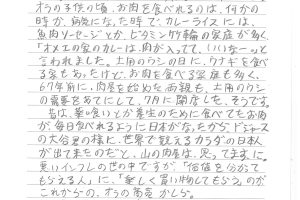 オラの子供の頃、お肉を食べれるのは、何かの
時か、病気になった時で、カレーライスには、
魚肉ソーセージとか、ビタミン竹輪の家庭が多く、
「オメエの家のカレーは、肉が入ってて、いいな〜っと
言われました。土用のウシの日に、ウナギを食べ
る家もあったけど、お肉を食べる家庭も多く、
67年前に、肉屋を始めた両親も、土用のウシ
の需要をあてにして、7月に開店した、そうです。
昔は、薬喰いとか養生のために食べてたお肉
が、毎日食べれるように日本がなったからドジャース
の大谷君の様に、世界で戦えるカラダの日本人
が出て来たのだと、山の肉屋は、思ってますに。
悪いインフレの世の中ですが「価値を分かって
もらえる人」に、「楽しく買い物してもらう」のが
これからの、オラの商売かしら。